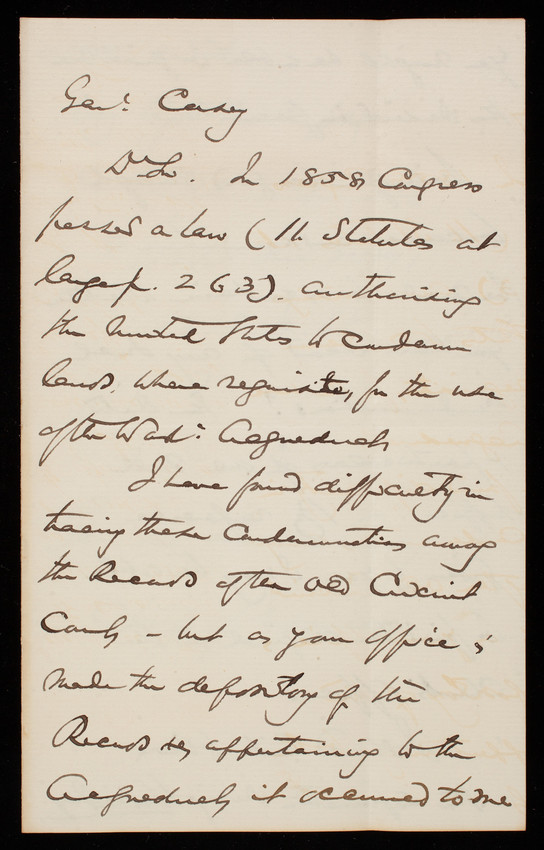 Genl. Casey
Dr Sr. In 1858 Congress
passed a law (11 Statutes at
large p. 263). authorising
the United States to condemn
lands, where requisite, for the use
of the Wash: Aqueduct
I have found difficulty in
tracing these Condemnations among
the Records of the old Circuit
Court - but as your office is
made the depository of the
Records &c appertaining to the
Aqueduct it occurred to me